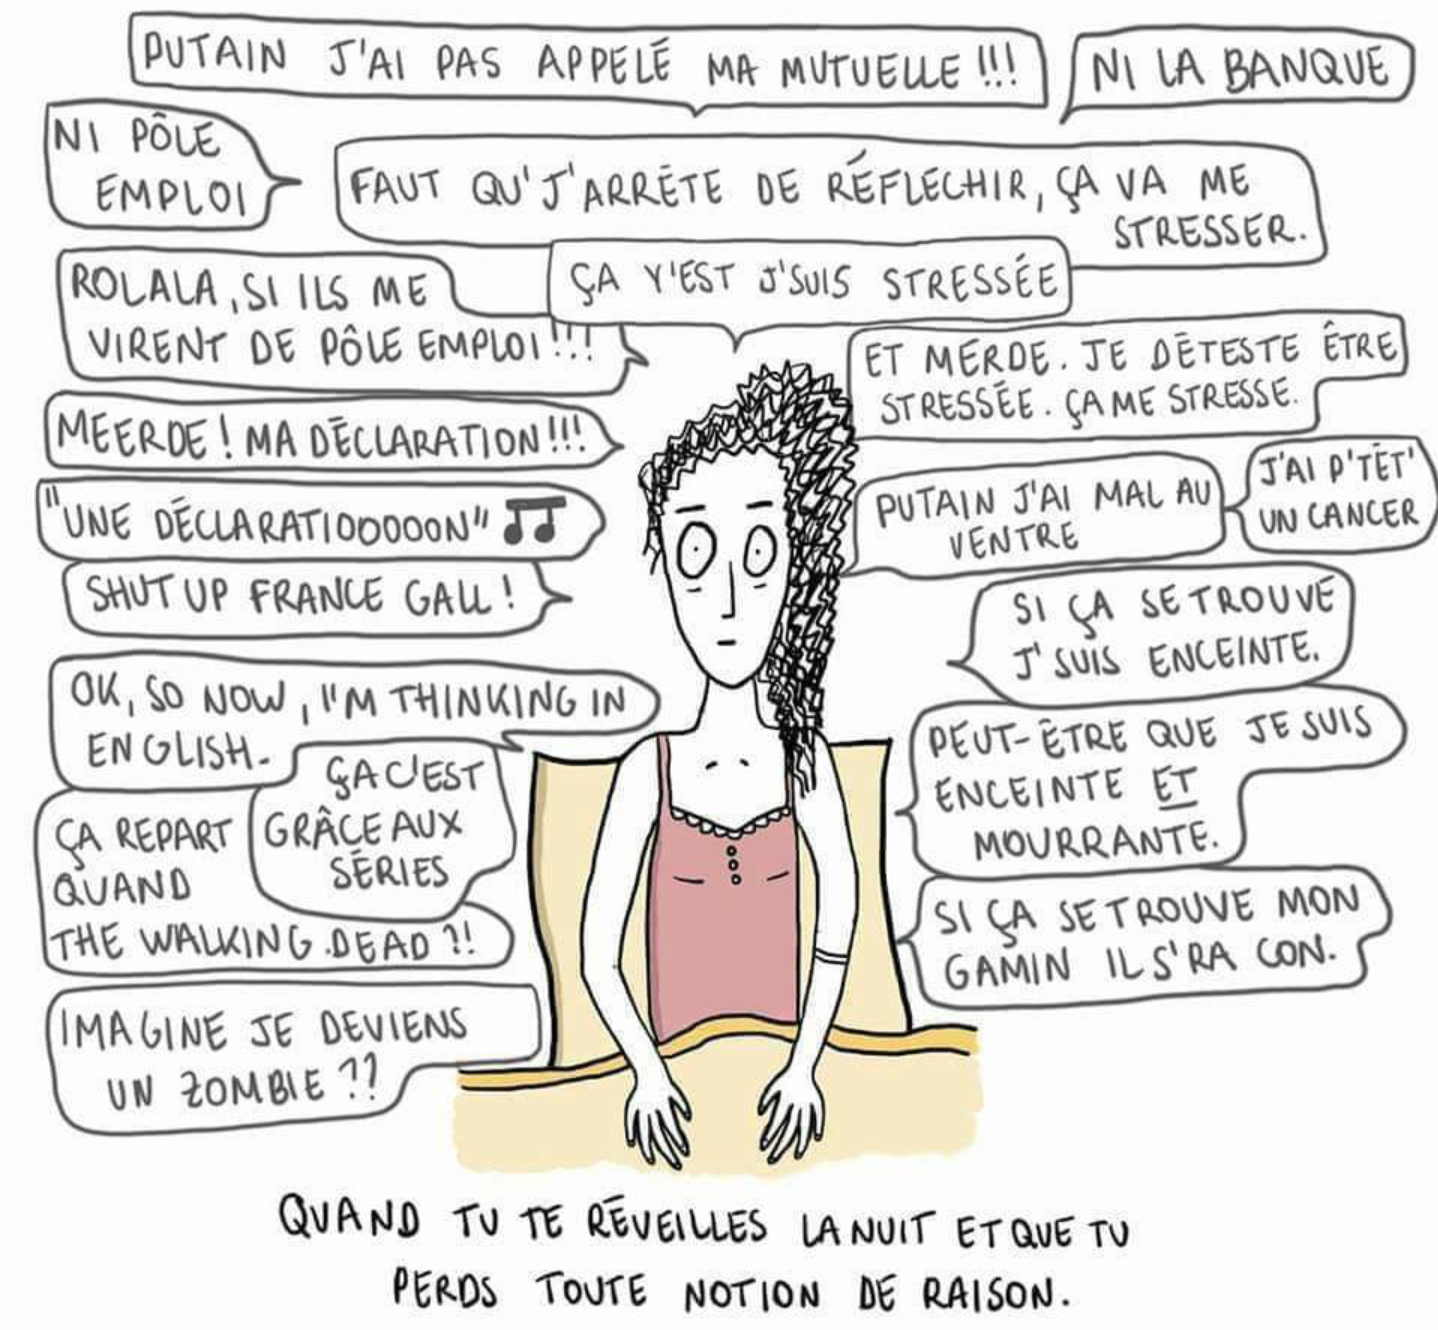 PUTAIN J'AI PAS APPELÉ MA MUTUELLE !!!
NI LA BANQUE
NI PÔLE
EMPLOI
FAUT QU'J'ARRÊTE DE RÉFLECHIR, ÇA VA ME
STRESSER.
ÇA Y'EST J'SUIS STRESSÉE
ROLALA, SI ILS ME
VIRENT DE PÔLE EMPLOI !!!
ET MERDE. JE DÉTESTE ÊTRE
STRESSÉE. ÇA ME STRESSE.
MEERDE ! MA DÉCLARATION !!!
PUTAIN J'AI MAL AU
VENTRE
J'AI P'TÊT'
UN CANCER
"UNE DÉCLARATIOOOOON" ♫
SHUT UP FRANCE GALL !
SI ÇA SE TROUVE
J'SUIS ENCEINTE.
OK, SO NOW, I'M THINKING IN
ENGLISH.
ÇA C'EST
GRÂCE AUX
SÉRIES
PEUT-ÊTRE QUE JE SUIS
ENCEINTE ET
MOURRANTE.
ÇA REPART
QUAND
THE WALKING DEAD ?!
SI ÇA SE TROUVE MON
GAMIN IL S'RA CON.
IMAGINE JE DEVIENS
UN ZOMBIE ??
QUAND TU TE RÉVEILLES LA NUIT ET QUE TU
PERDS TOUTE NOTION DE RAISON.